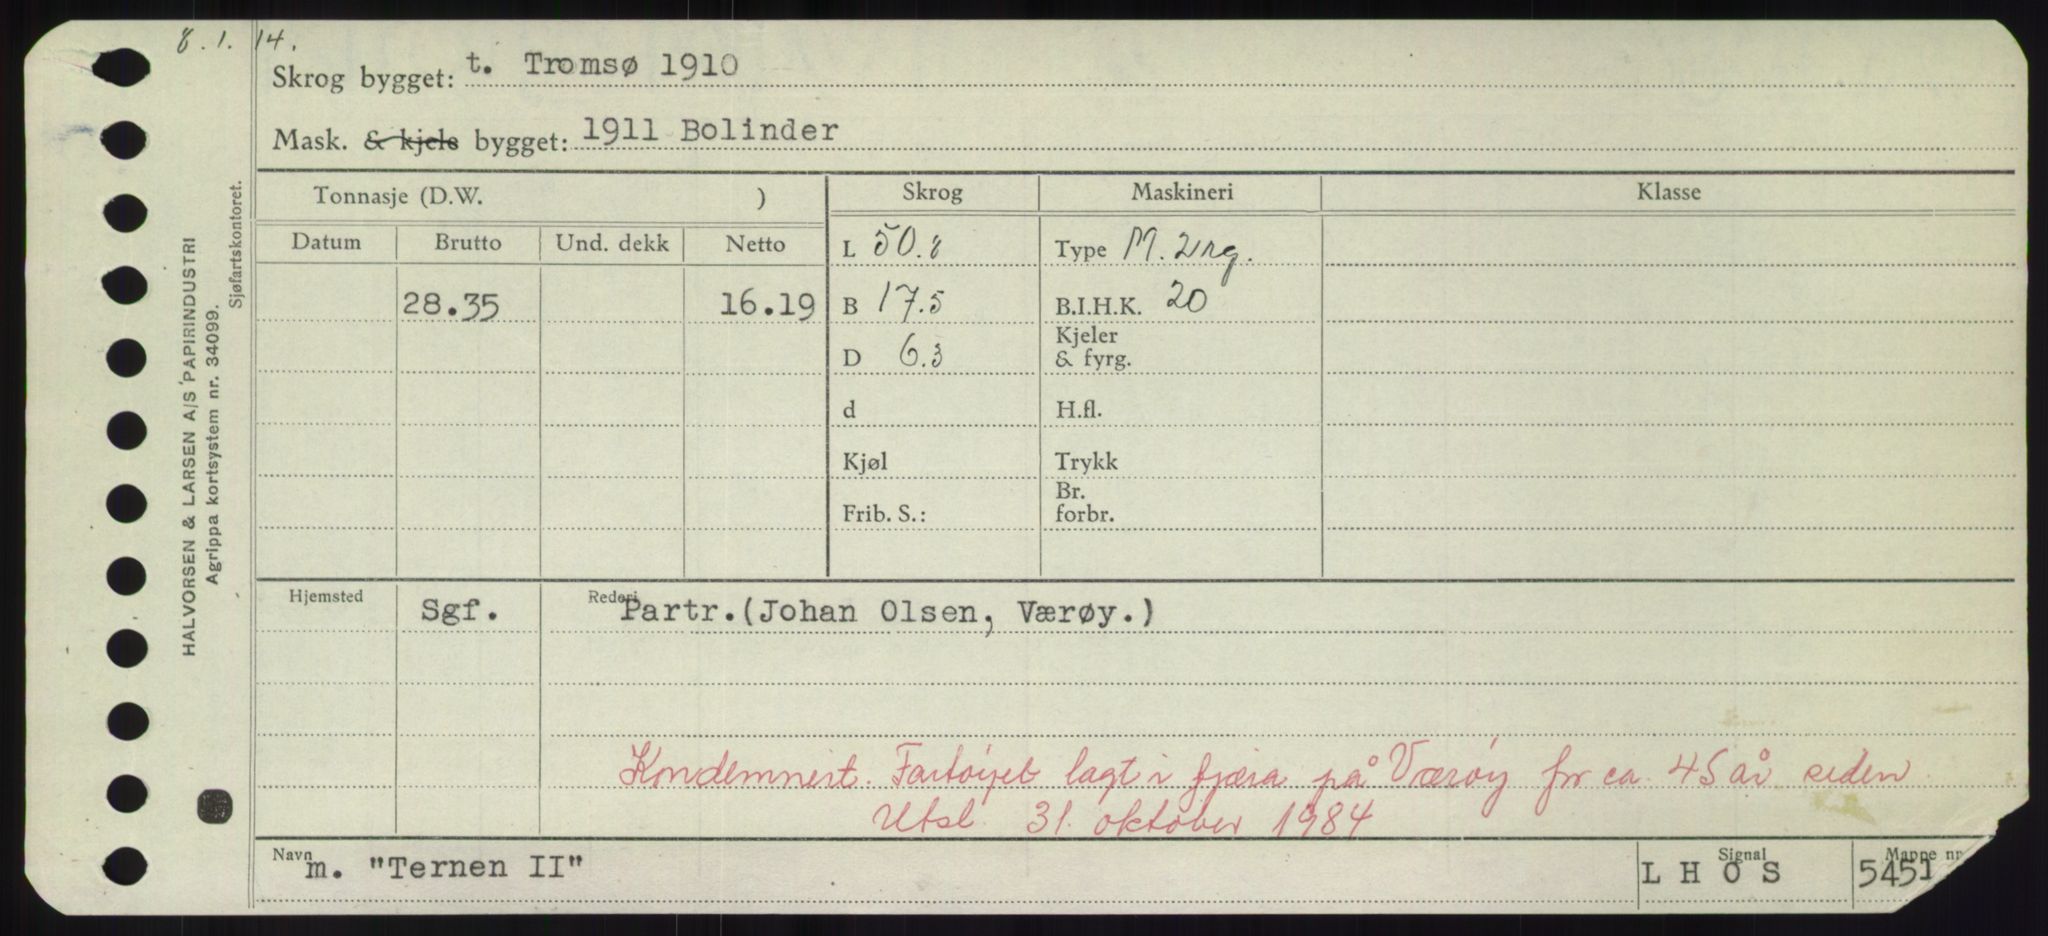 8.1.14.
Skrog bygget: t. Tromsø 1910
Mask. & kjele bygget: 1911 Bolinder
Tonnasje (D.W. ) Skrog Maskineri Klasse
Datum Brutto Und. dekk Netto L 50.8 Type M. 2rg.
28.35 16.19 B 17.5 B.I.H.K. 20
D 6.3 Kjeler & fyrg.
d H.fl.
Kjøl Trykk
Frib. S.: Br. forbr.
Hjemsted Sgf. Rederi Partr.(Johan Olsen, Værøy.)
Kondemnert. Fartøyet lagt i fjæra på Værøy for ca. 45 år siden
Utsl. 31. oktober 1984
Navn m. "Ternen II" Signal L H O S Mappe nr 5451
HALVORSEN & LARSEN A/S PAPIRINDUSTRI
Agrippa kortsystem nr. 34099.
Sjøfartskontoret.